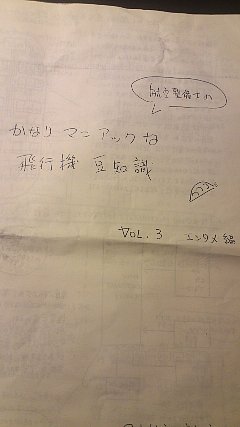 航空整備士の
かなりマニアックな
飛行機 豆知識
VOL. 3 エンタメ編